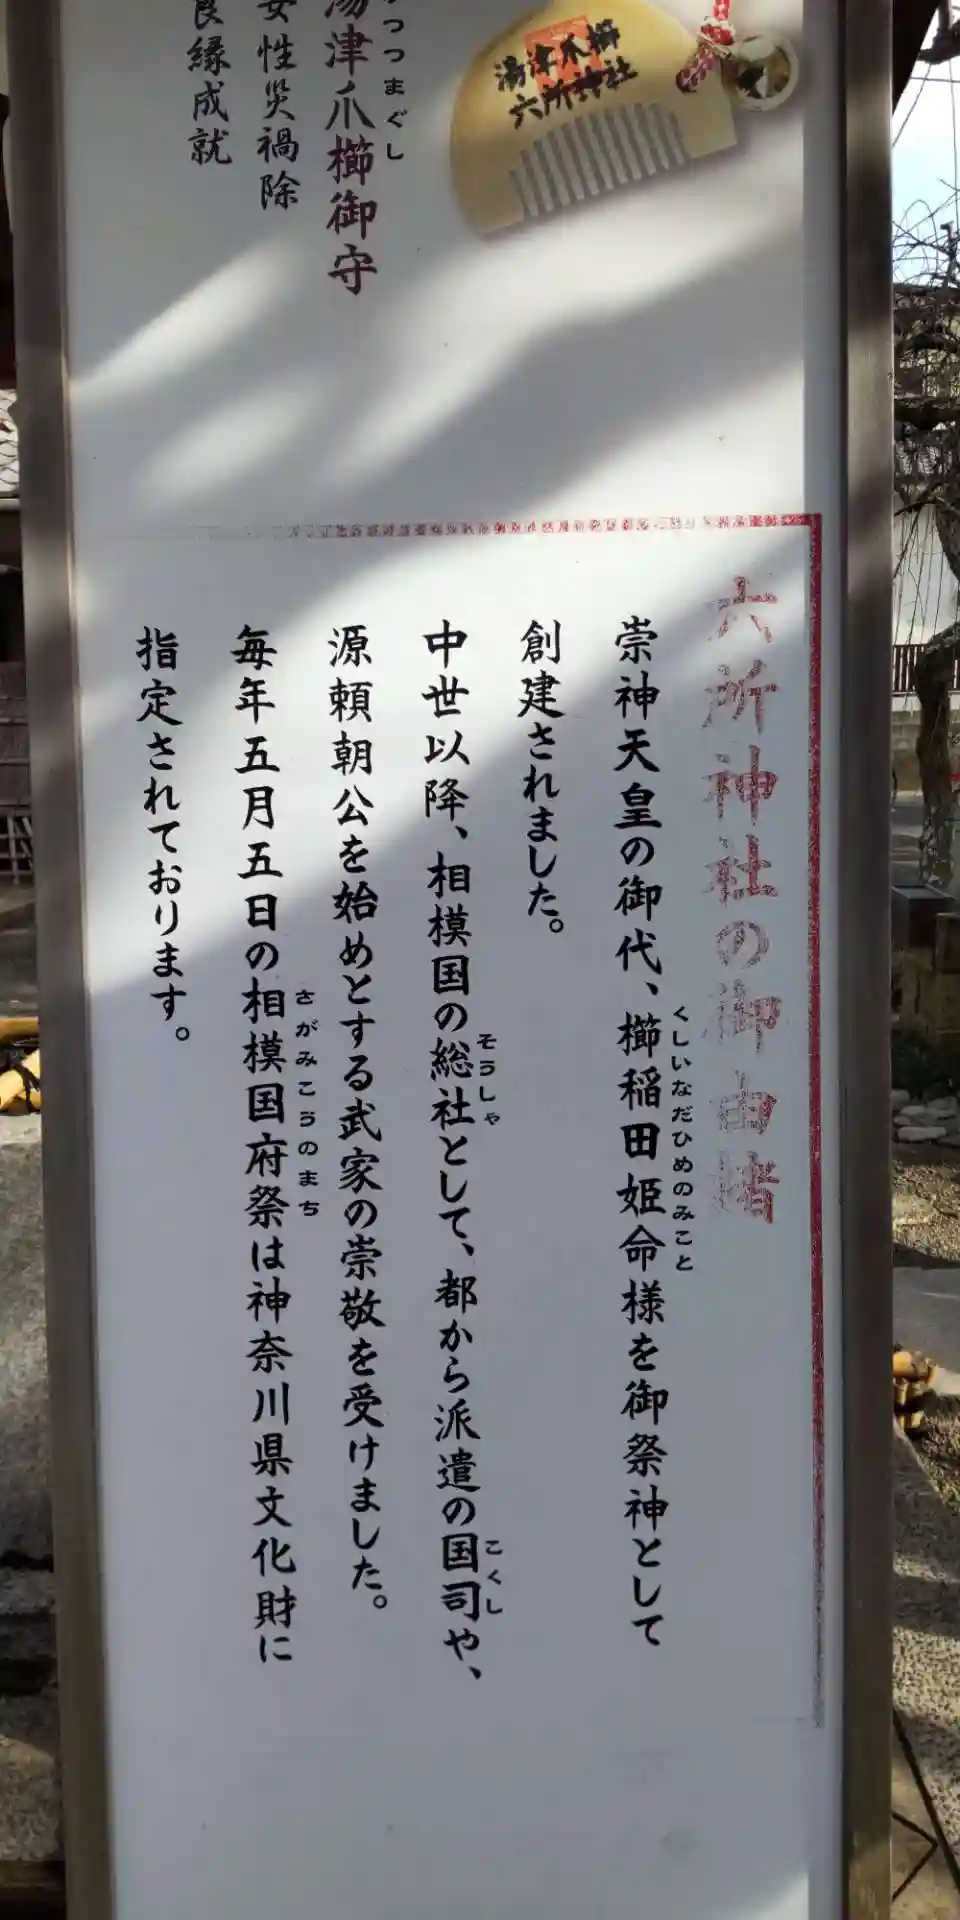 湯津爪櫛
六所神社
つつまぐし
湯津爪櫛御守
女性災禍除
良縁成就
六所神社の御由緒
崇神天皇の御代、櫛稲田姫命様を御祭神として
くしいなだひめのみこと
創建されました。
中世以降、相模国の総社として、都から派遣の国司や、
そうしゃ
こくし
源頼朝公を始めとする武家の崇敬を受けました。
毎年五月五日の相模国府祭は神奈川県文化財に
さがみこうのまち
指定されております。